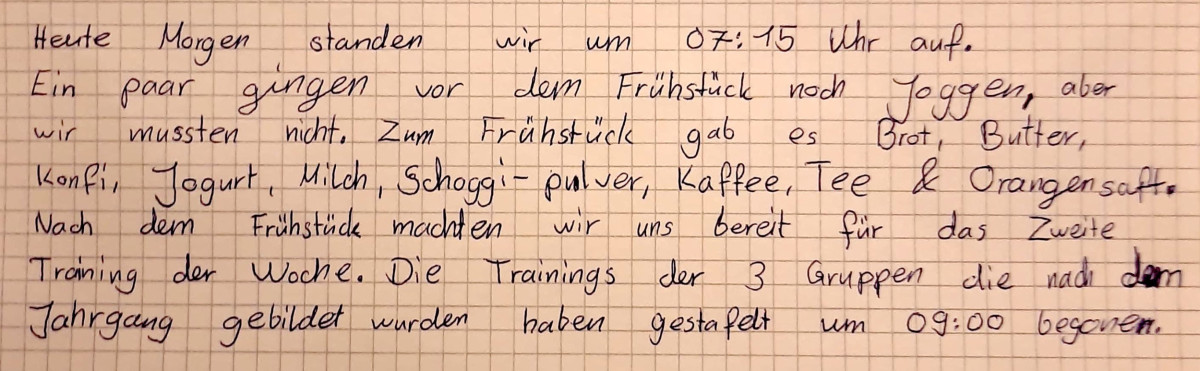 Heute Morgen standen wir um 07:15 Uhr auf.
Ein paar gingen vor dem Frühstück noch Joggen, aber
wir mussten nicht. Zum Frühstück gab es Brot, Butter,
Konfi, Jogurt, Milch, Schoggi-pulver, Kaffee, Tee & Orangensaft.
Nach dem Frühstück machten wir uns bereit für das Zweite
Training der Woche. Die Trainings der 3 Gruppen die nach dem
Jahrgang gebildet wurden haben gestafelt um 09:00 begonen.